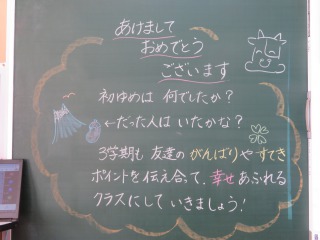 あけまして
おめでとう
ございます
初ゆめは 何でしたか？
←だった人は いたかな？
3学期も 友達の がんばりや すてき
ポイントを 伝え合って、幸せ あふれる
クラスにして いきましょう！